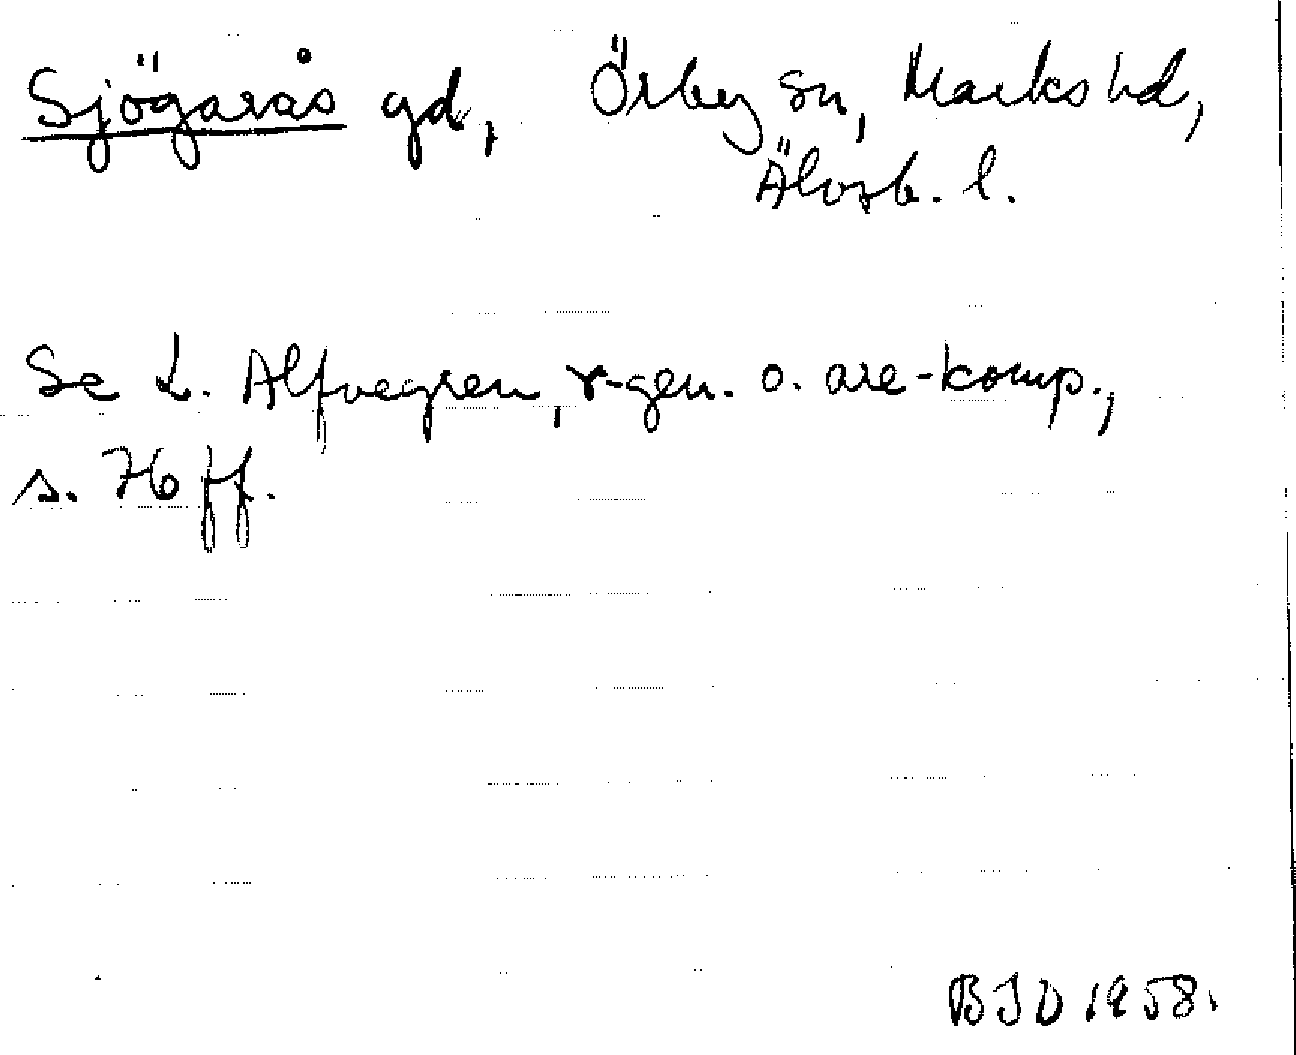 Sjögarås gd, Örby sn, Marks hd,
Älvsb. l.
Se L. Alfvegren, r-gen. o. are-komp.,
s. 76 ff.
BJD 1958.